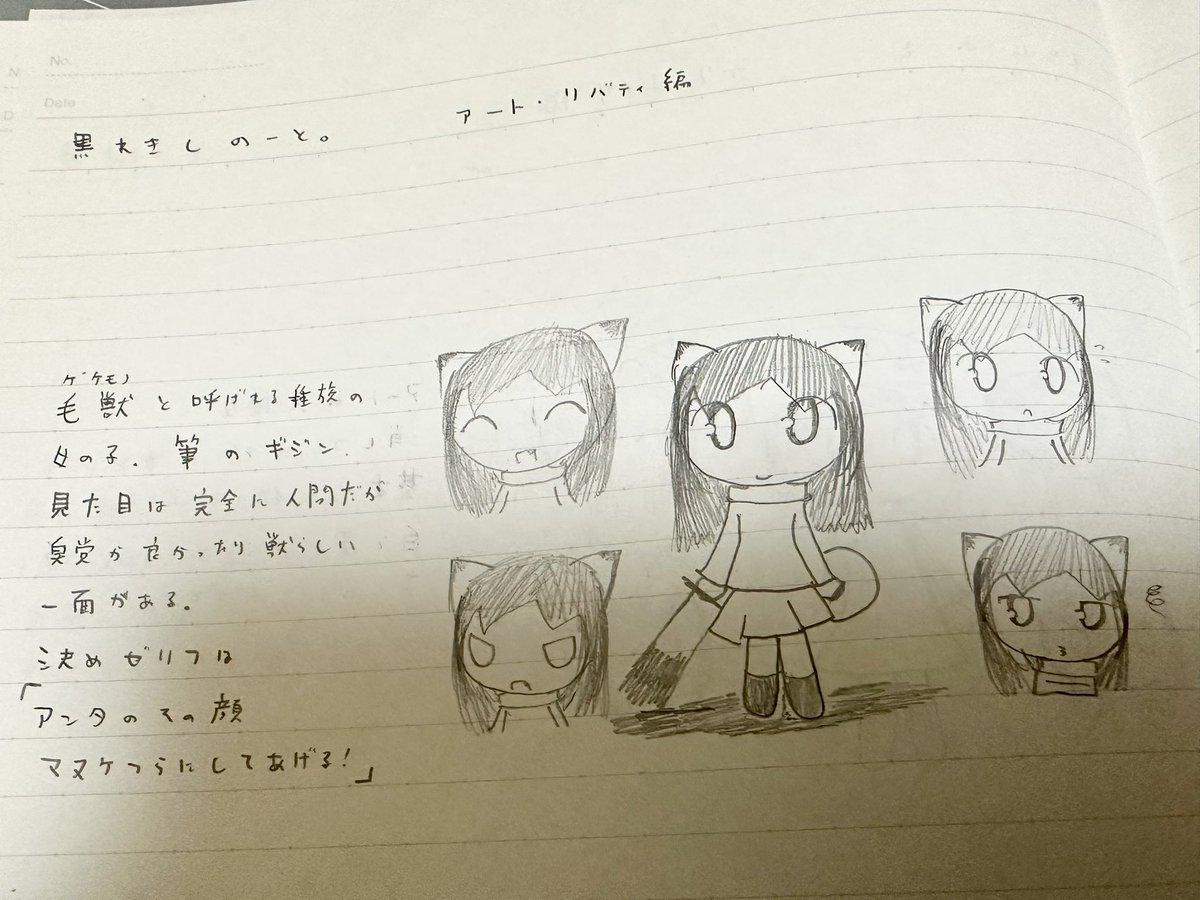 No.
Date
アート・リバティ編
黒れきしのーと。
ゲケモノ
毛獣と呼ばれる種族の
女の子。筆のギジン。
見た目は完全に人間だが
臭覚が良かったり獣らしい
一面がある。
決めゼリフは
「アンタのその顔
マヌケづらにしてあげる!」